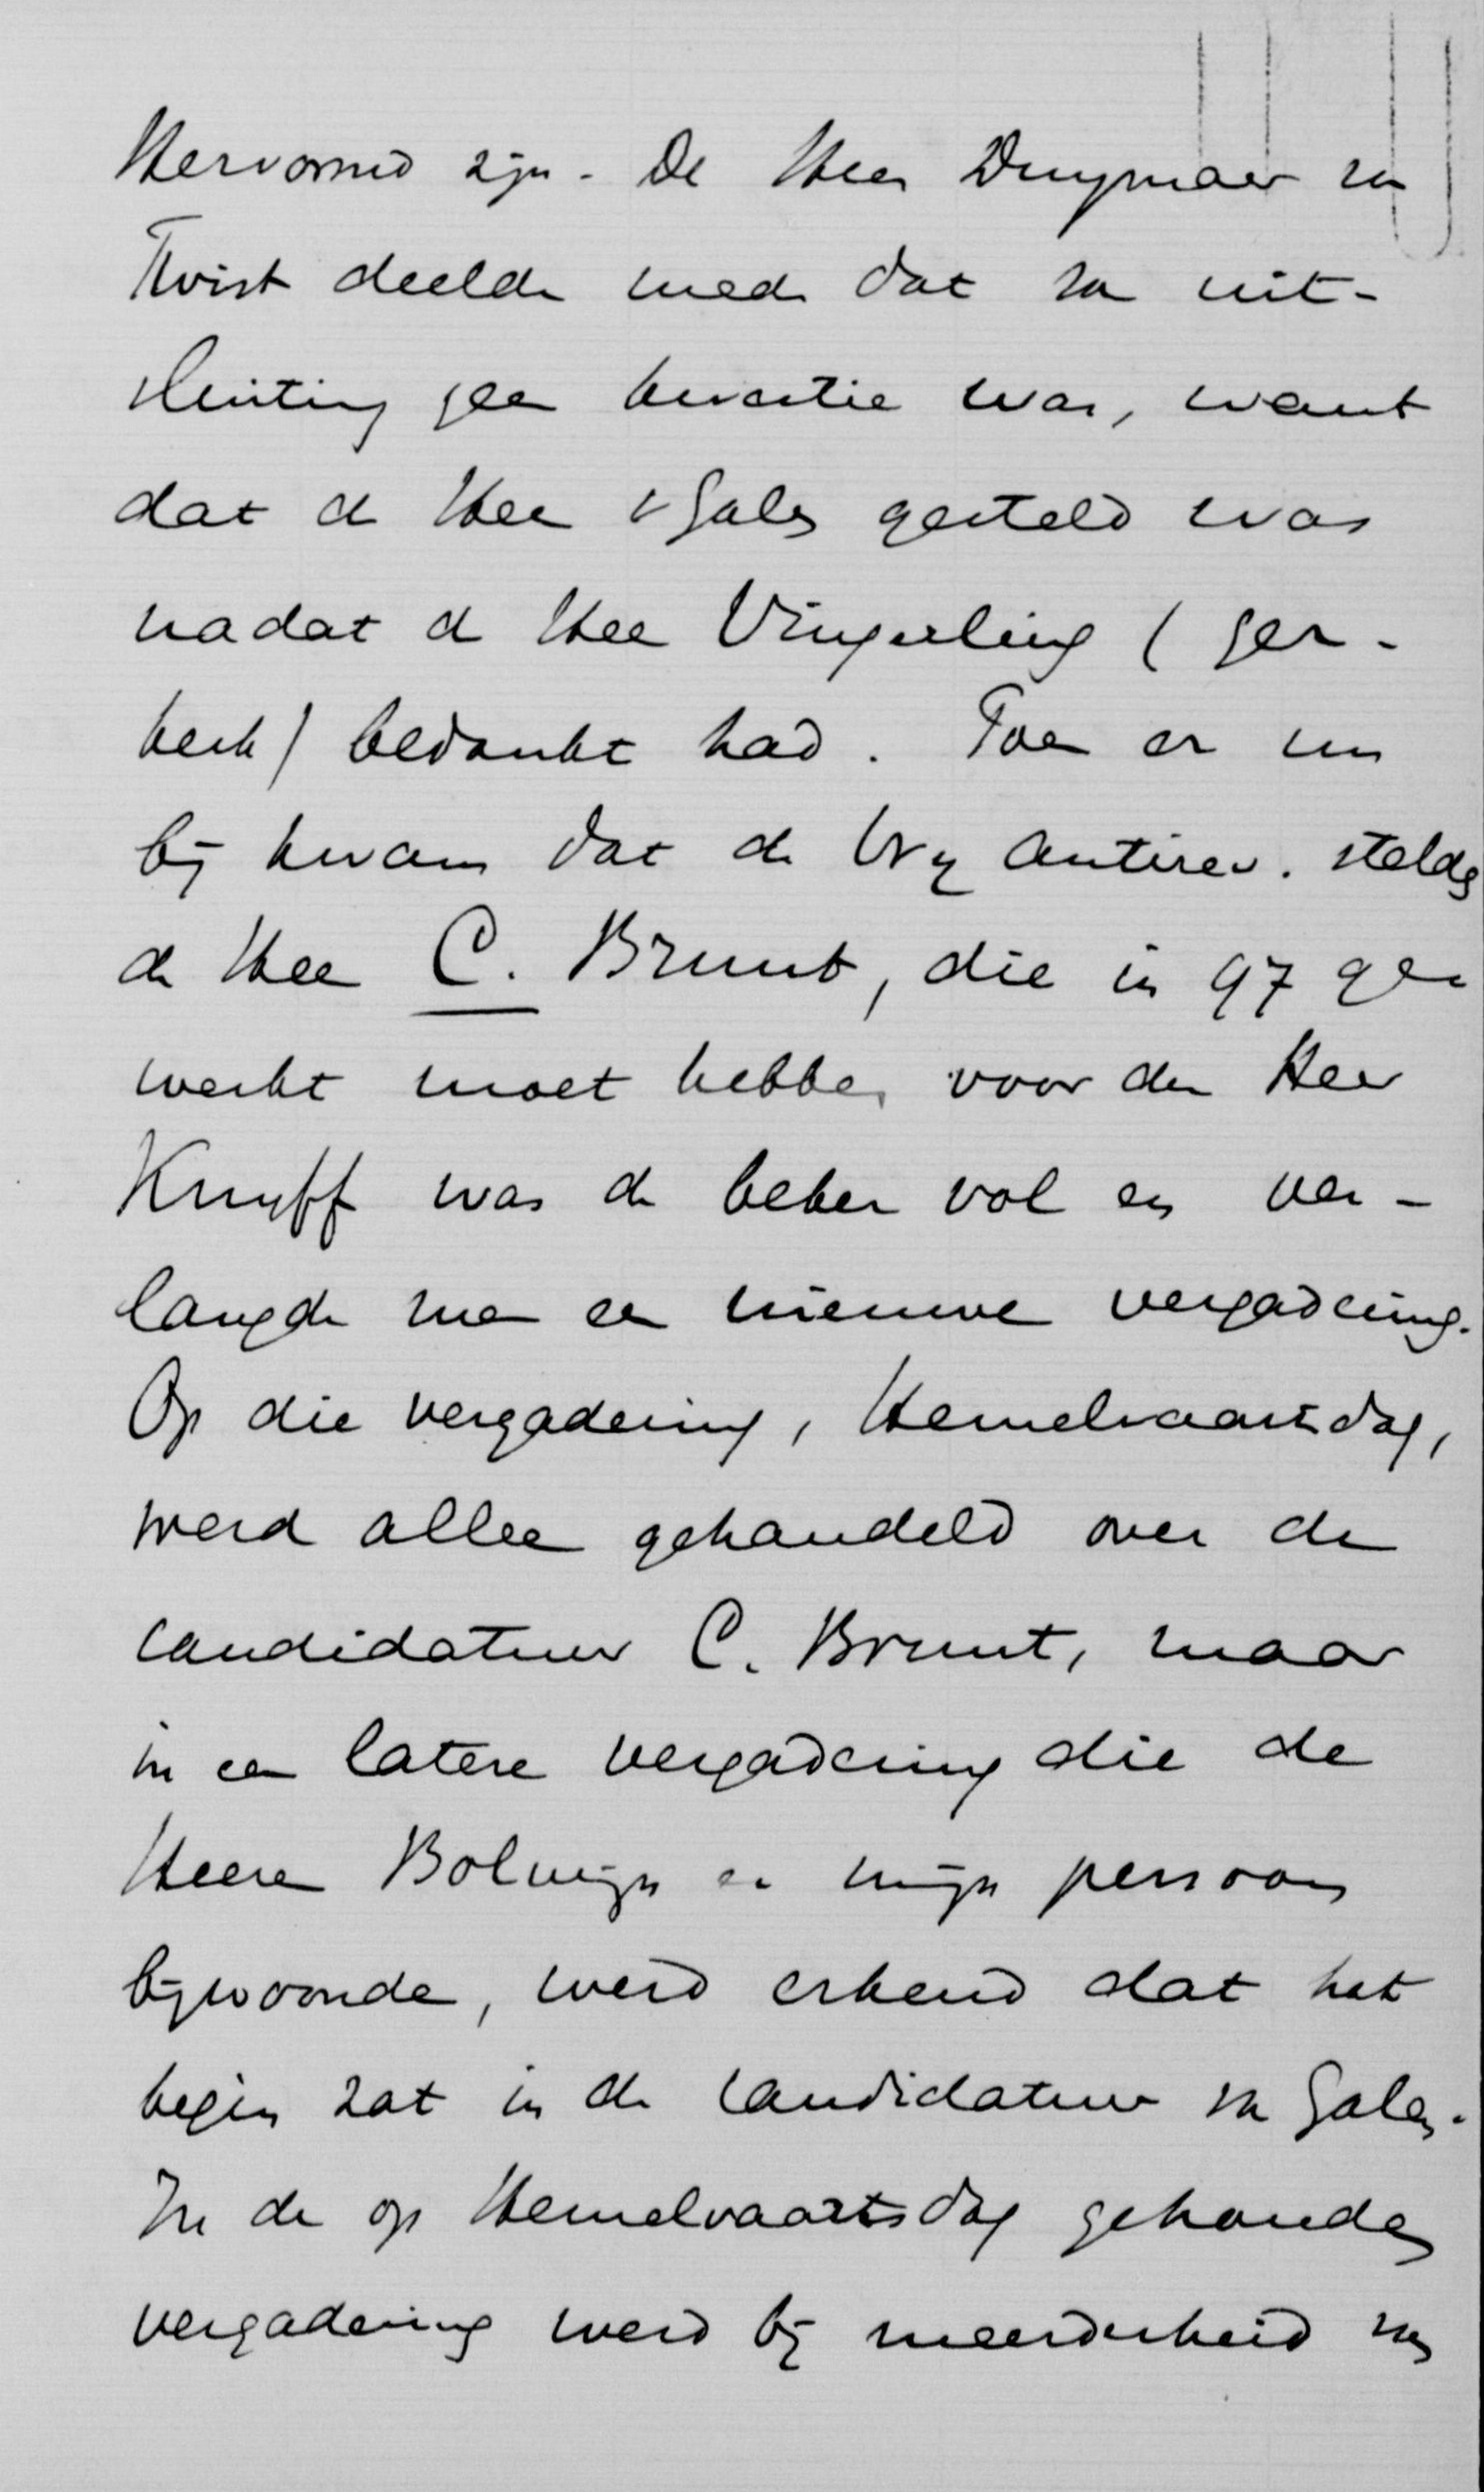 Hervormd zijn. De Heer Duymaer van
Twist deelde mede dat van uit-
sluiting geen kwestie was, want
dat de Heer v Galen gesteld was
nadat de Heer Vingerling (ger.
kerk) bedankt had. Toen er nu
bij kwam dat de Vrij Antirev. stelden
de Heer C. Brunt, die in 97 ge
werkt moet hebben voor den Heer
Kruyff was de beker vol en ver-
langde men een nieuwe vergadering.
Op die vergadering, Hemelvaartsdag,
werd alleen gehandeld over de
candidatuur C. Brunt, maar
in een latere vergadering die de
Heeren Bolwijn en mijn persoon
bijwoonde, werd erkend dat het
begin zat in de candidatuur van Galen.
In de op Hemelvaartsdag gehouden
vergadering werd bij meerderheid van